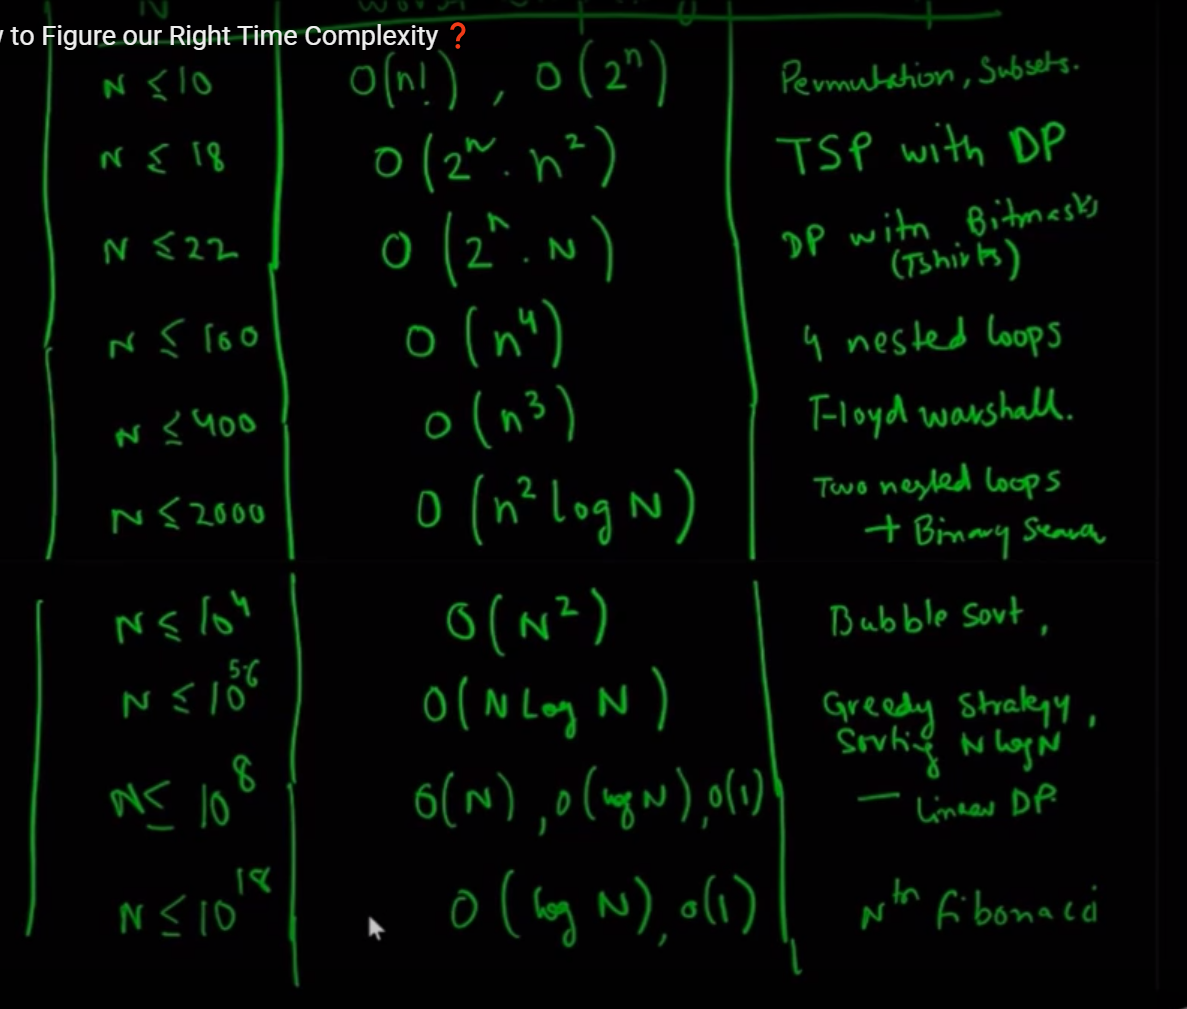 to Figure our Right Time Complexity ❓
N ≤ 10 O(n!), O(2ⁿ) Permutation, Subsets.
N ≤ 18 O(2ᴺ . n²) TSP with DP
N ≤ 22 O(2ⁿ . N) DP with Bitmasks
(Tshirts)
N ≤ 100 O(n⁴) 4 nested loops
N ≤ 400 O(n³) Floyd warshall.
N ≤ 2000 O(n² log N) Two nested loops
+ Binary Search
N ≤ 10⁴ O(N²) Bubble Sort,
N ≤ 10⁵⁻⁶ O(N Log N) Greedy Strategy,
Sorting N log N
N ≤ 10⁸ O(N), O(log N), O(1) — Linear DP.
N ≤ 10¹⁸ O(log N), O(1) Nᵗʰ fibonacci